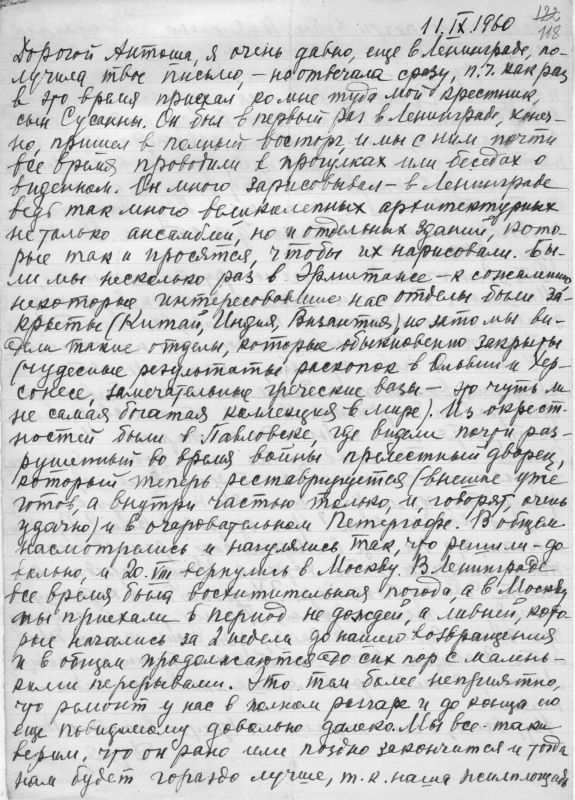 122
118
11.IX.1960
Дорогой Антоша, я очень давно, еще в Ленинграде, по-
лучила твое письмо, – но отвечала сразу, п.ч. как раз
в это время приехал ко мне туда мой крестник,
сын Сусанны. Он был в первый раз в Ленинграде, конеч-
но, пришел в полный восторг, и мы с ним почти
все время проводили в прогулках или беседах о
виденном. Он много зарисовывал – в Ленинграде
ведь так много великолепных архитектурных
не только ансамблей, но и отдельных зданий, кото-
рые так и просятся, чтобы их нарисовали. Бы-
ли мы несколько раз в Эрмитаже – к сожалению
некоторые интересовавшие нас отделы были за-
крыты (Китай, Индия, Византия), но зато мы ви-
дели такие отделы, которые обыкновенно закрыты
(чудесные результаты раскопок в Ольвии и Хер-
сонесе, замечательные греческие вазы – это чуть ли
не самая богатая коллекция в мире). Из окрест-
ностей были в Павловске, где видели почти раз-
рушенный во время войны прелестный дворец,
который теперь реставрируется (внешне уже
готов, а внутри частью только, и, говорят, очень
удачно) и в очаровательном Петергофе. В общем
насмотрелись и нагулялись так, что решили – до-
вольно, и 20.VIII вернулись в Москву. В Ленинграде
все время была восхитительная погода, а в Москву
мы приехали в период не дождей, а ливней, кото-
рые начались за 2 недели до нашего возвращения
и в общем продолжаются до сих пор с малень-
кими перерывами. Это тем более неприятно,
что ремонт у нас в полном разгаре и до конца его
еще повидимому довольно далеко. Мы все-таки
верим, что он рано или поздно закончится и тогда
нам будет гораздо лучше, т.к. наша жилплощадь